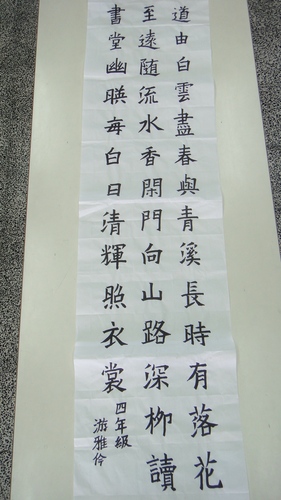 道由白雲盡春與青溪長時有落花
至遠隨流水香閑門向山路深柳讀
書堂幽暎每白日清輝照衣裳
四年級
游雅伶